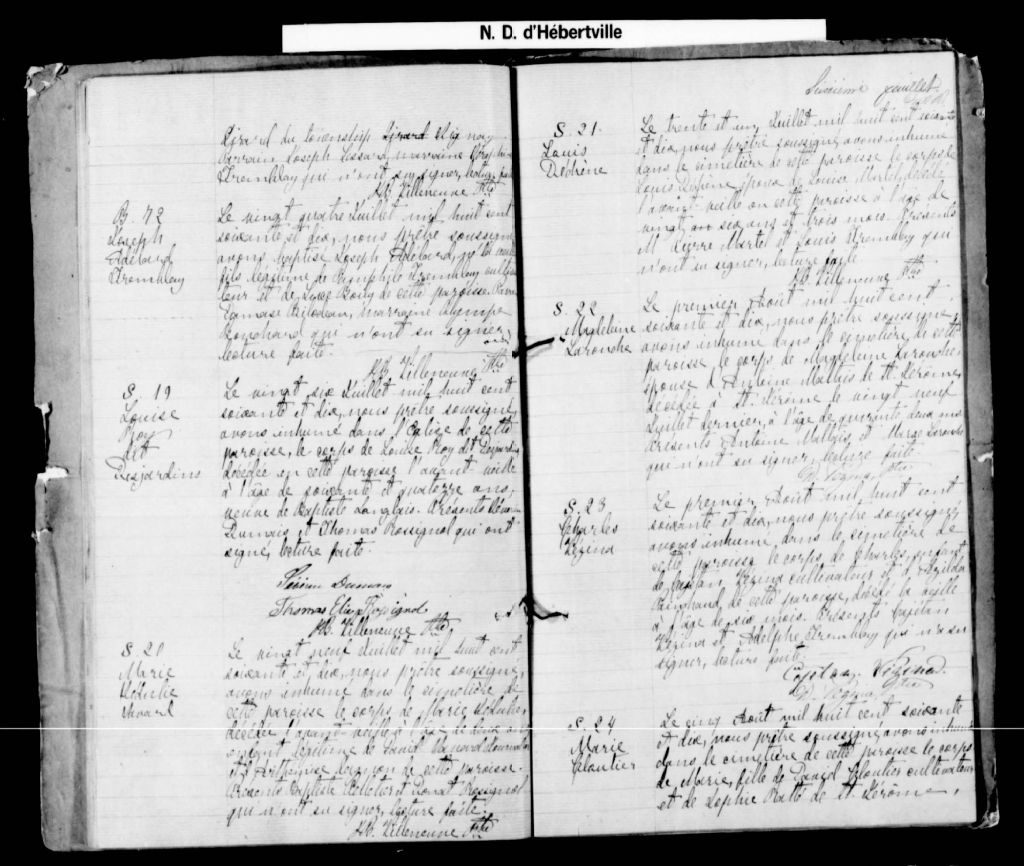 N. D. d'Hébertville
Girard du township
Parrain Joseph marraine
Tremblay qui n'ont su signer, lecture faite
Villeneuve Ptre
B. 42
Joseph
Adélard
Tremblay
Le vingt quatre Juillet mil huit cent
soixante et dix, nous prêtre soussigné
avons baptisé Joseph Adélard, né la veille
fils légitime de Tremblay cultiva
teur et de Luce Boily de cette paroisse. Parrain
marraine Olympe
Bouchard qui n'ont su signer,
lecture faite.
Villeneuve Ptre
S. 19
Louise
Roy
dit
Desjardins
Le vingt six Juillet mil huit cent
soixante et dix, nous prêtre soussigné,
avons inhumé dans l'Eglise de cette
paroisse, le corps de Louise Roy dit Desjardins
décédée en cette paroisse l'avant veille
à l'âge de soixante et quatorze ans,
veuve de Baptiste Langlais. Présents
Dumais et Thomas Rossignol qui ont
signé, lecture faite.
Dumais
Thomas Rossignol
Villeneuve Ptre
S. 20
Marie
Le vingt neuf Juillet mil huit cent
soixante et dix, nous prêtre soussigné,
avons inhumé dans le cimetière de
cette paroisse le corps de Marie
décédée l'avant veille à l'âge de deux ans
enfant légitime de David
et d'Arthémise de cette paroisse.
Présents Baptiste et Rossignol
qui n'ont su signer, lecture faite.
Villeneuve Ptre
juillet
S. 21
Louis
Dechène
Le trente et un Juillet mil huit cent soixante
et dix, nous prêtre soussigné, avons inhumé
dans le cimetière de cette paroisse le corps de
Louis Dechène époux de Louise Martel, décédé
l'avant veille en cette paroisse à l'âge de
vingt six ans et trois mois. Présents
M. Pierre Martel et Louis Tremblay qui
n'ont su signer, lecture faite
Villeneuve Ptre
S. 22
Magdeleine
Larouche
Le premier Août mil huit cent
soixante et dix, nous prêtre soussigné,
avons inhumé dans le cimetière de cette
paroisse, le corps de Magdeleine Larouche,
épouse d'Antoine Maltais de St. Jérôme,
décédée à St. Jérôme le vingt neuf
Juillet dernier, à l'âge de quarante deux ans
Présents Antoine Maltais, et Larouche
qui n'ont su signer, lecture faite
Vézina Ptre
S. 23
Charles
Vézina
Le premier Août mil huit cent
soixante et dix, nous prêtre soussigné,
avons inhumé, dans le cimetière de
cette paroisse le corps de Charles, enfant
de Capitan Vézina cultivateur et d'Exzilda
de cette paroisse, décédé la veille
à l'âge de six mois. Présents Capitan
Vézina et Adolphe Tremblay qui n'a su
signer, lecture faite.
Capitan Vézina
Vézina Ptre
S. 24
Marie
Cloutier
Le cinq Août mil huit cent soixante
et dix, nous prêtre soussigné, avons inhumé
dans le cimetière de cette paroisse le corps
de Marie, fille de David Cloutier cultivateur
et de Sophie Ratté de St. Jérôme,